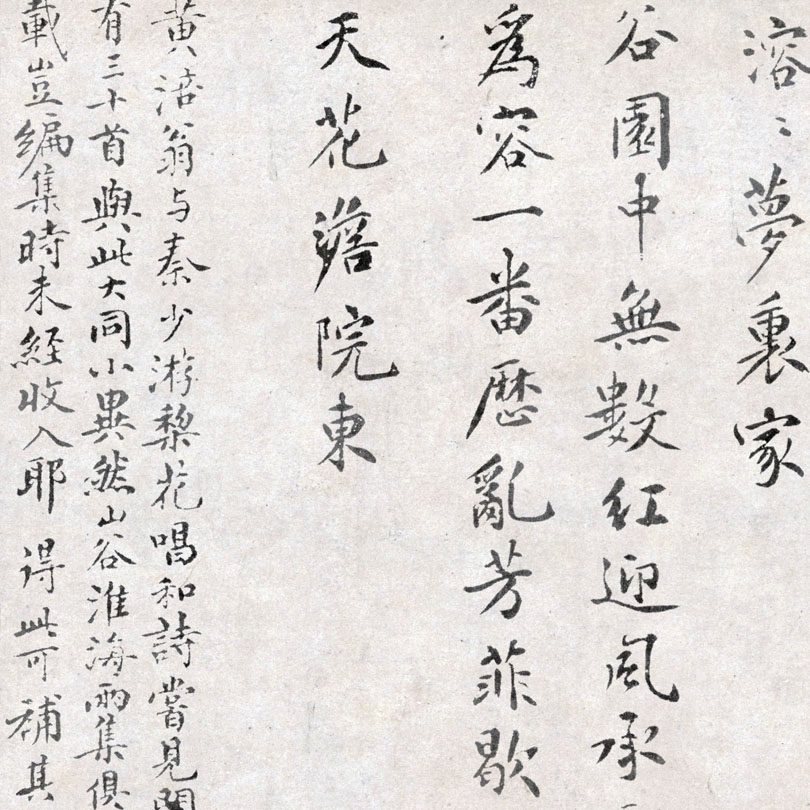 溶〻夢裏家
谷園中無數紅迎風承
為容一番歷亂芳菲歇
天花澹院東
黃涪翁与秦少游梨花唱和詩嘗見
有三十首與此大同小異然山谷淮海兩集俱
載豈編集時未經收入耶 得此可補其